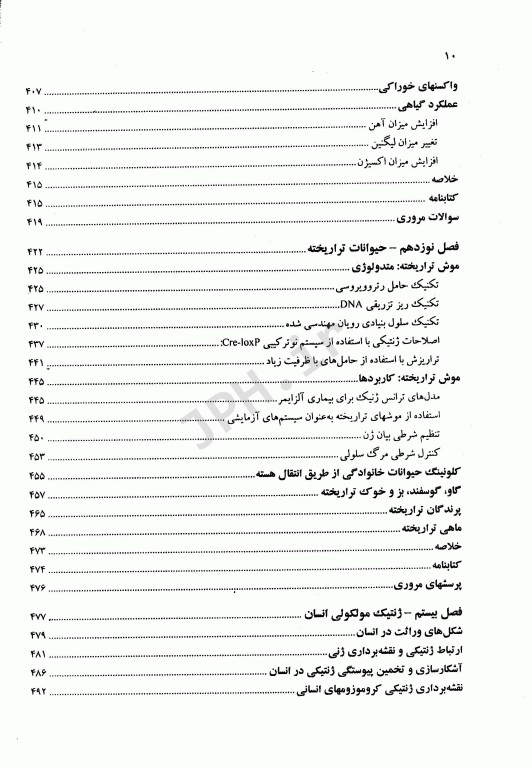 ۱۰
واکسنهای خوراکی ........ ۴۰۷
عملکرد گیاهی ........ ۴۱۰
افزایش میزان آهن ........ ۴۱۱
تغییر میزان لیگنین ........ ۴۱۳
افزایش میزان اکسیژن ........ ۴۱۴
خلاصه ........ ۴۱۵
کتابنامه ........ ۴۱۵
سوالات مروری ........ ۴۱۹
فصل نوزدهم – حیوانات تراریخته ........ ۴۲۲
موش تراریخته: متدولوژی ........ ۴۲۵
تکنیک حامل رتروویروسی ........ ۴۲۵
تکنیک ریز تزریقی DNA ........ ۴۲۷
تکنیک سلول بنیادی رویان مهندسی شده ........ ۴۳۰
اصلاحات ژنتیکی با استفاده از سیستم نوترکیبی Cre-loxP: ........ ۴۳۷
تراریزش با استفاده از حامل‌های با ظرفیت زیاد ........ ۴۴۱
موش تراریخته: کاربردها ........ ۴۴۵
مدل‌های ترانس ژنیک برای بیماری آلزایمر ........ ۴۴۵
استفاده از موشهای تراریخته به‌عنوان سیستم‌های آزمایشی ........ ۴۴۹
تنظیم شرطی بیان ژن ........ ۴۵۰
کنترل شرطی مرگ سلولی ........ ۴۵۳
کلونینگ حیوانات خانوادگی از طریق انتقال هسته ........ ۴۵۵
گاو، گوسفند، بز و خوک تراریخته ........ ۴۵۷
پرندگان تراریخته ........ ۴۶۵
ماهی تراریخته ........ ۴۶۸
خلاصه ........ ۴۷۳
کتابنامه ........ ۴۷۴
پرسشهای مروری ........ ۴۷۶
فصل بیستم – ژنتیک مولکولی انسان ........ ۴۷۷
شکل‌های وراثت در انسان ........ ۴۷۹
ارتباط ژنتیکی و نقشه‌برداری ژنی ........ ۴۸۱
آشکارسازی و تخمین پیوستگی ژنتیکی در انسان ........ ۴۸۶
نقشه‌برداری ژنتیکی کروموزومهای انسانی ........ ۴۹۲
JPH.ir